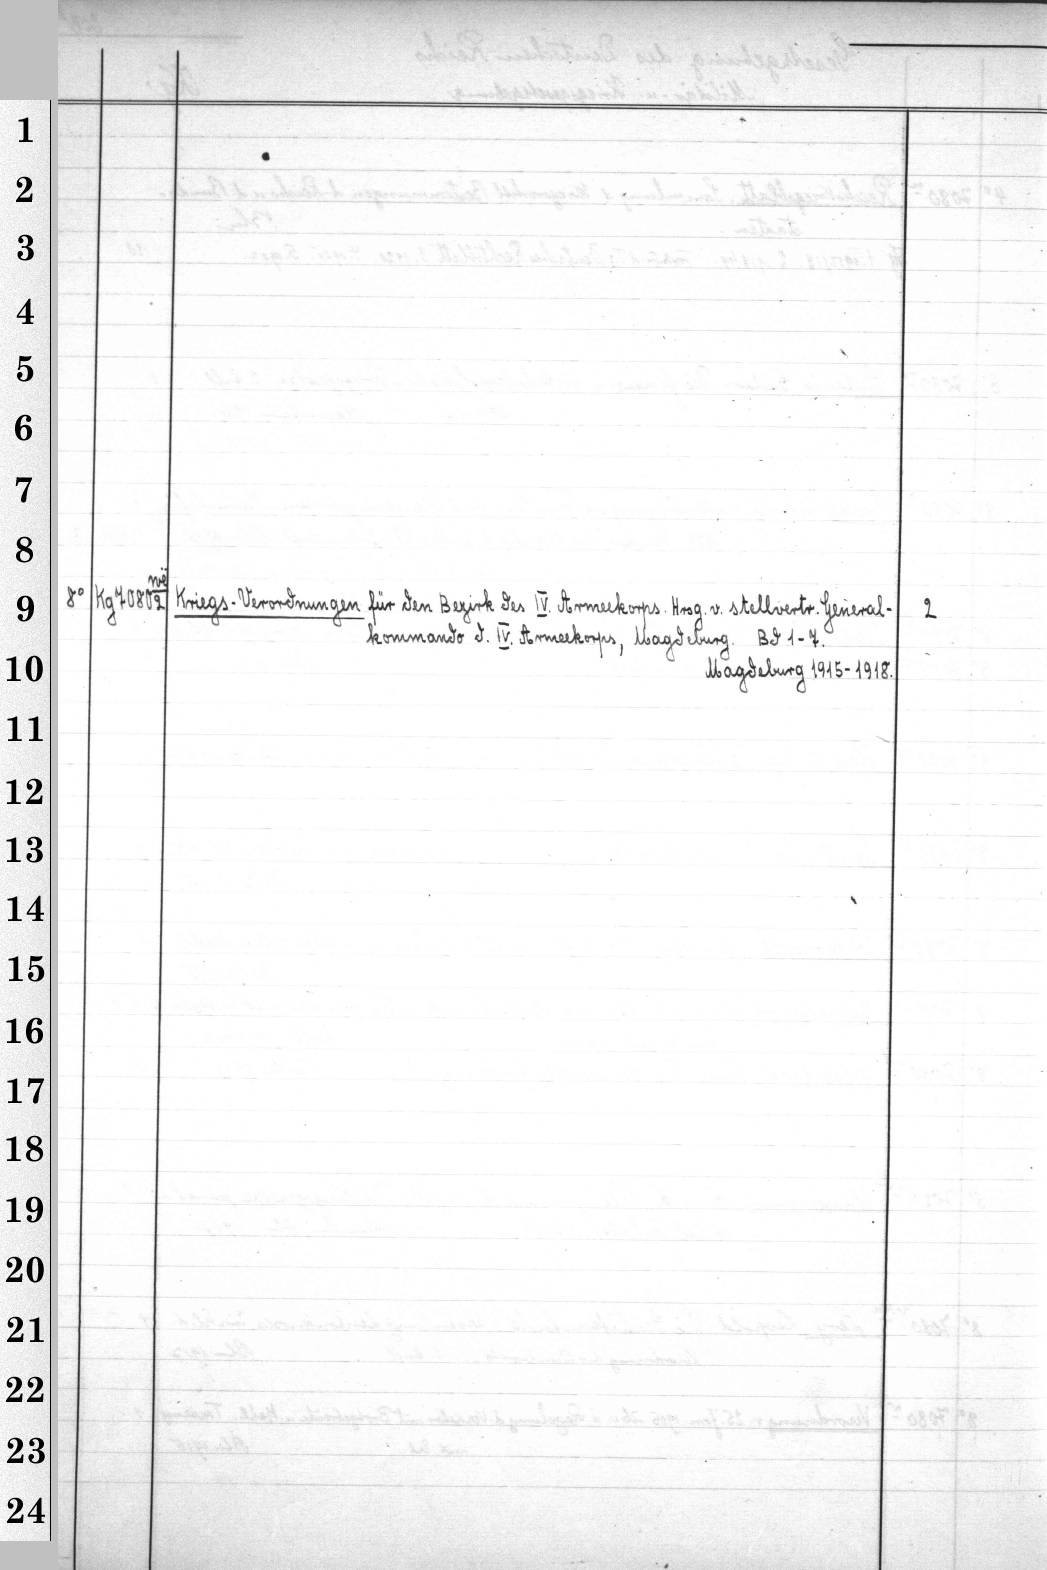 1
2
3
4
5
6
7
8
9 8° Kg 7080 wë/2 Kriegs-Verordnungen für den Bezirk des IV. Armeekorps. Hrsg. v. stellvertr. General- 2
kommando d. IV. Armeekorps, Magdeburg. Bd 1-7.
10 Magdeburg 1915-1918.
11
12
13
14
15
16
17
18
19
20
21
22
23
24